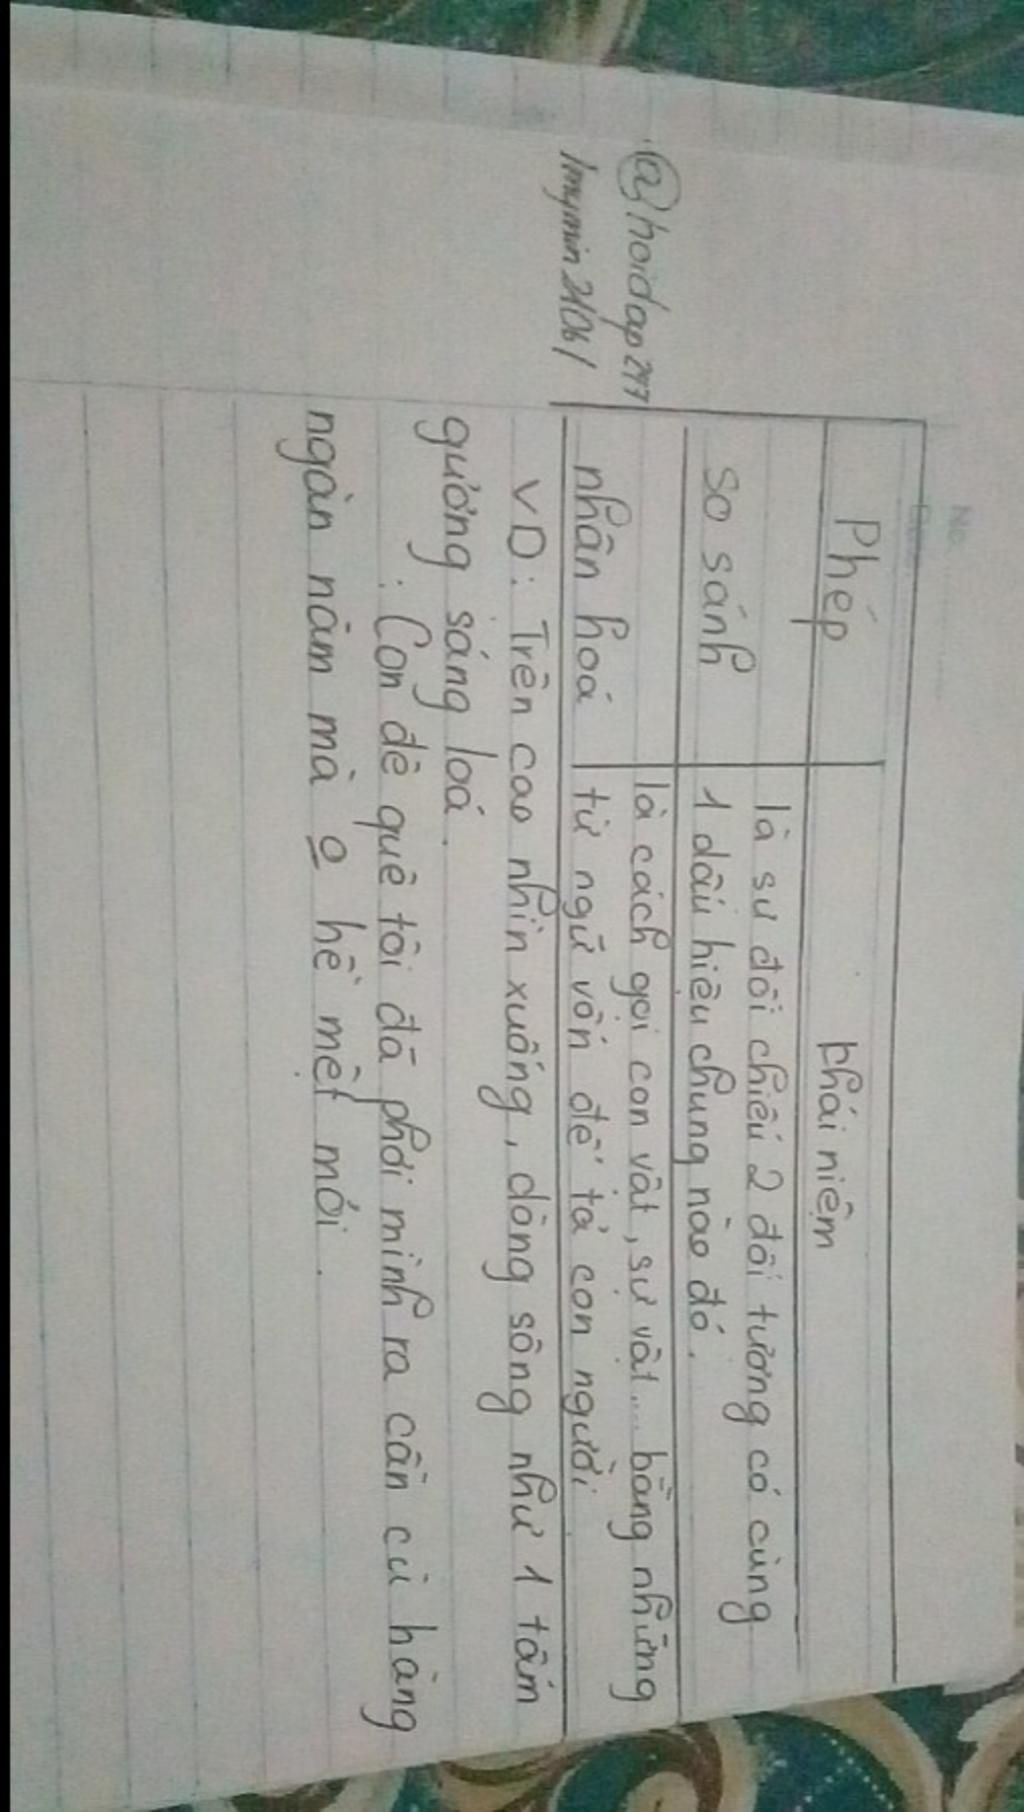 No.
Phép khái niệm
là sự đối chiếu 2 đối tượng có cùng
so sánh 1 dấu hiệu chung nào đó.
là cách gọi con vật, sự vật... bằng những
nhân hoá từ ngữ vốn để tả con người
@hoidap247
VD: Trên cao nhìn xuống, dòng sông như 1 tấm
gương sáng loá.
. Con đê quê tôi đã phơi mình ra cần cù hàng
ngàn năm mà o hề mệt mỏi.